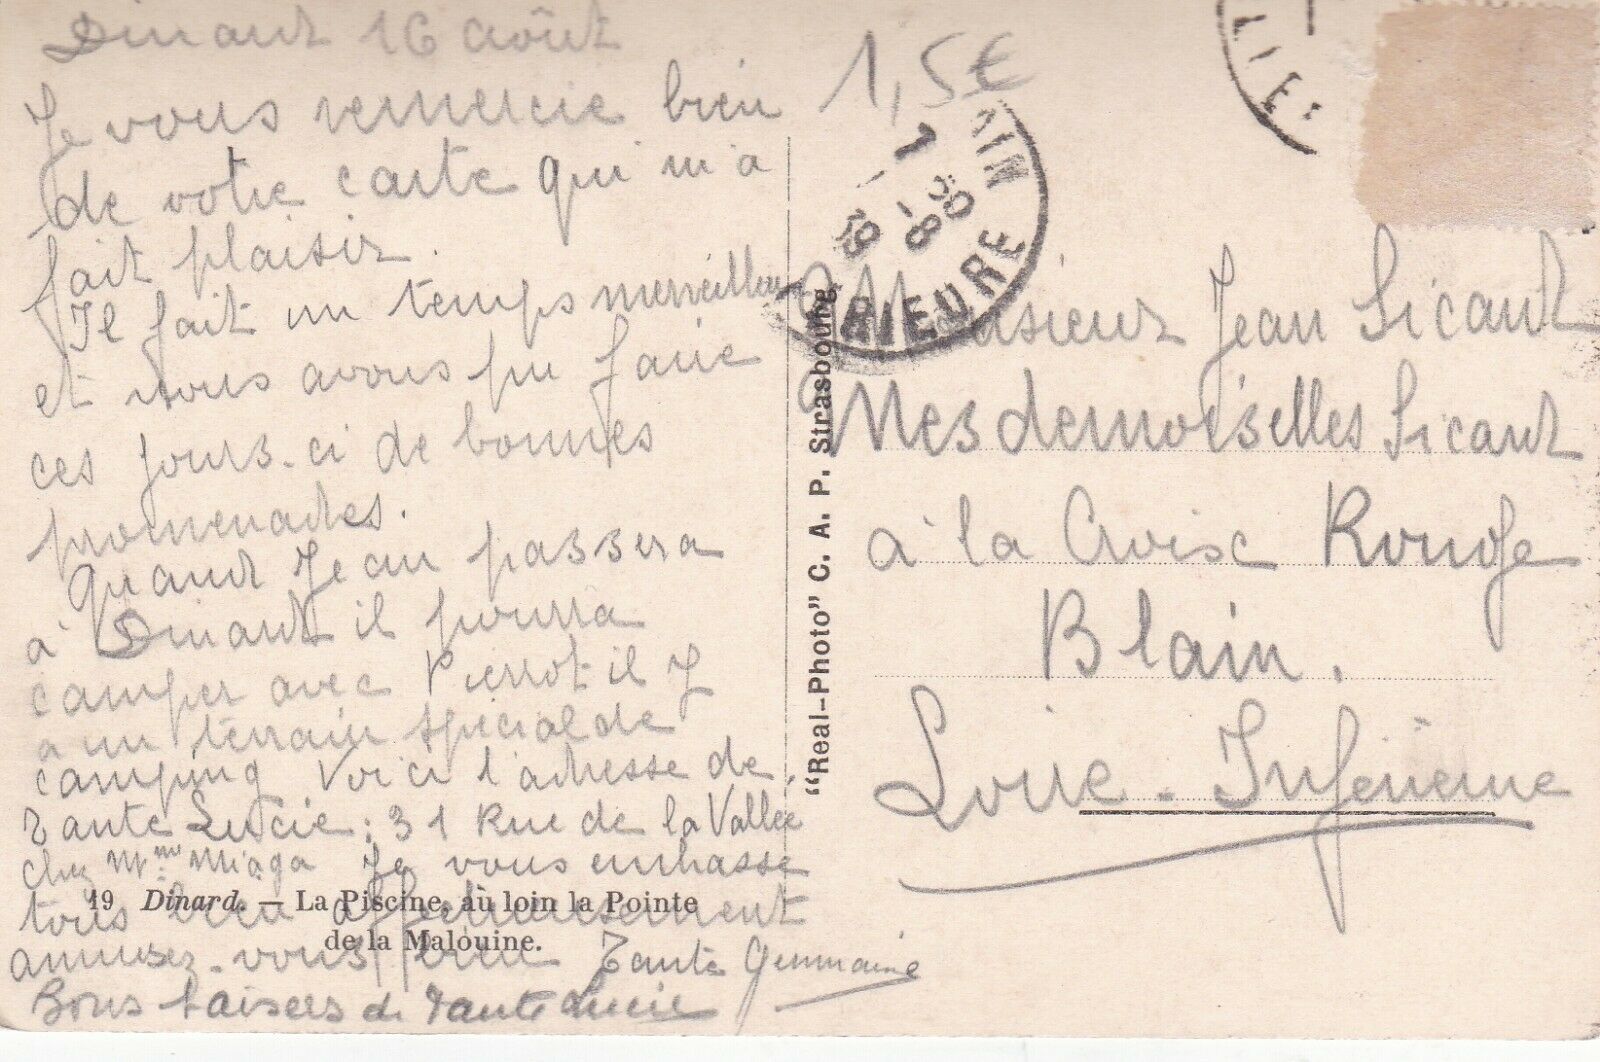 Dinard 16 août
Je vous remercie bien
de votre carte qui m'a
fait plaisir.
Il fait un temps merveilleux
et nous avons pu faire
ces jours-ci de bonnes
promenades.
Quand Jean passera
à Dinard il pourra
camper avec Pierrot il y
a un terrain spécial de
camping Voici l'adresse de
Tante Lucie : 31 Rue de la Vallée
chez Mme Miaga Je vous embrasse
tous bien affectueusement
amusez-vous bien Tante Germaine
Bons baisers de Tante Lucie
19 Dinard. — La Piscine, au loin la Pointe
de la Malouine.
"Real-Photo" C. A. P. Strasbourg
1,5€
AIN
7 30
-8
39
RIEURE
Monsieur Jean Sicard
Mesdemoiselles Sicard
à la Croix Rouge
Blain.
Loire-Inférieure